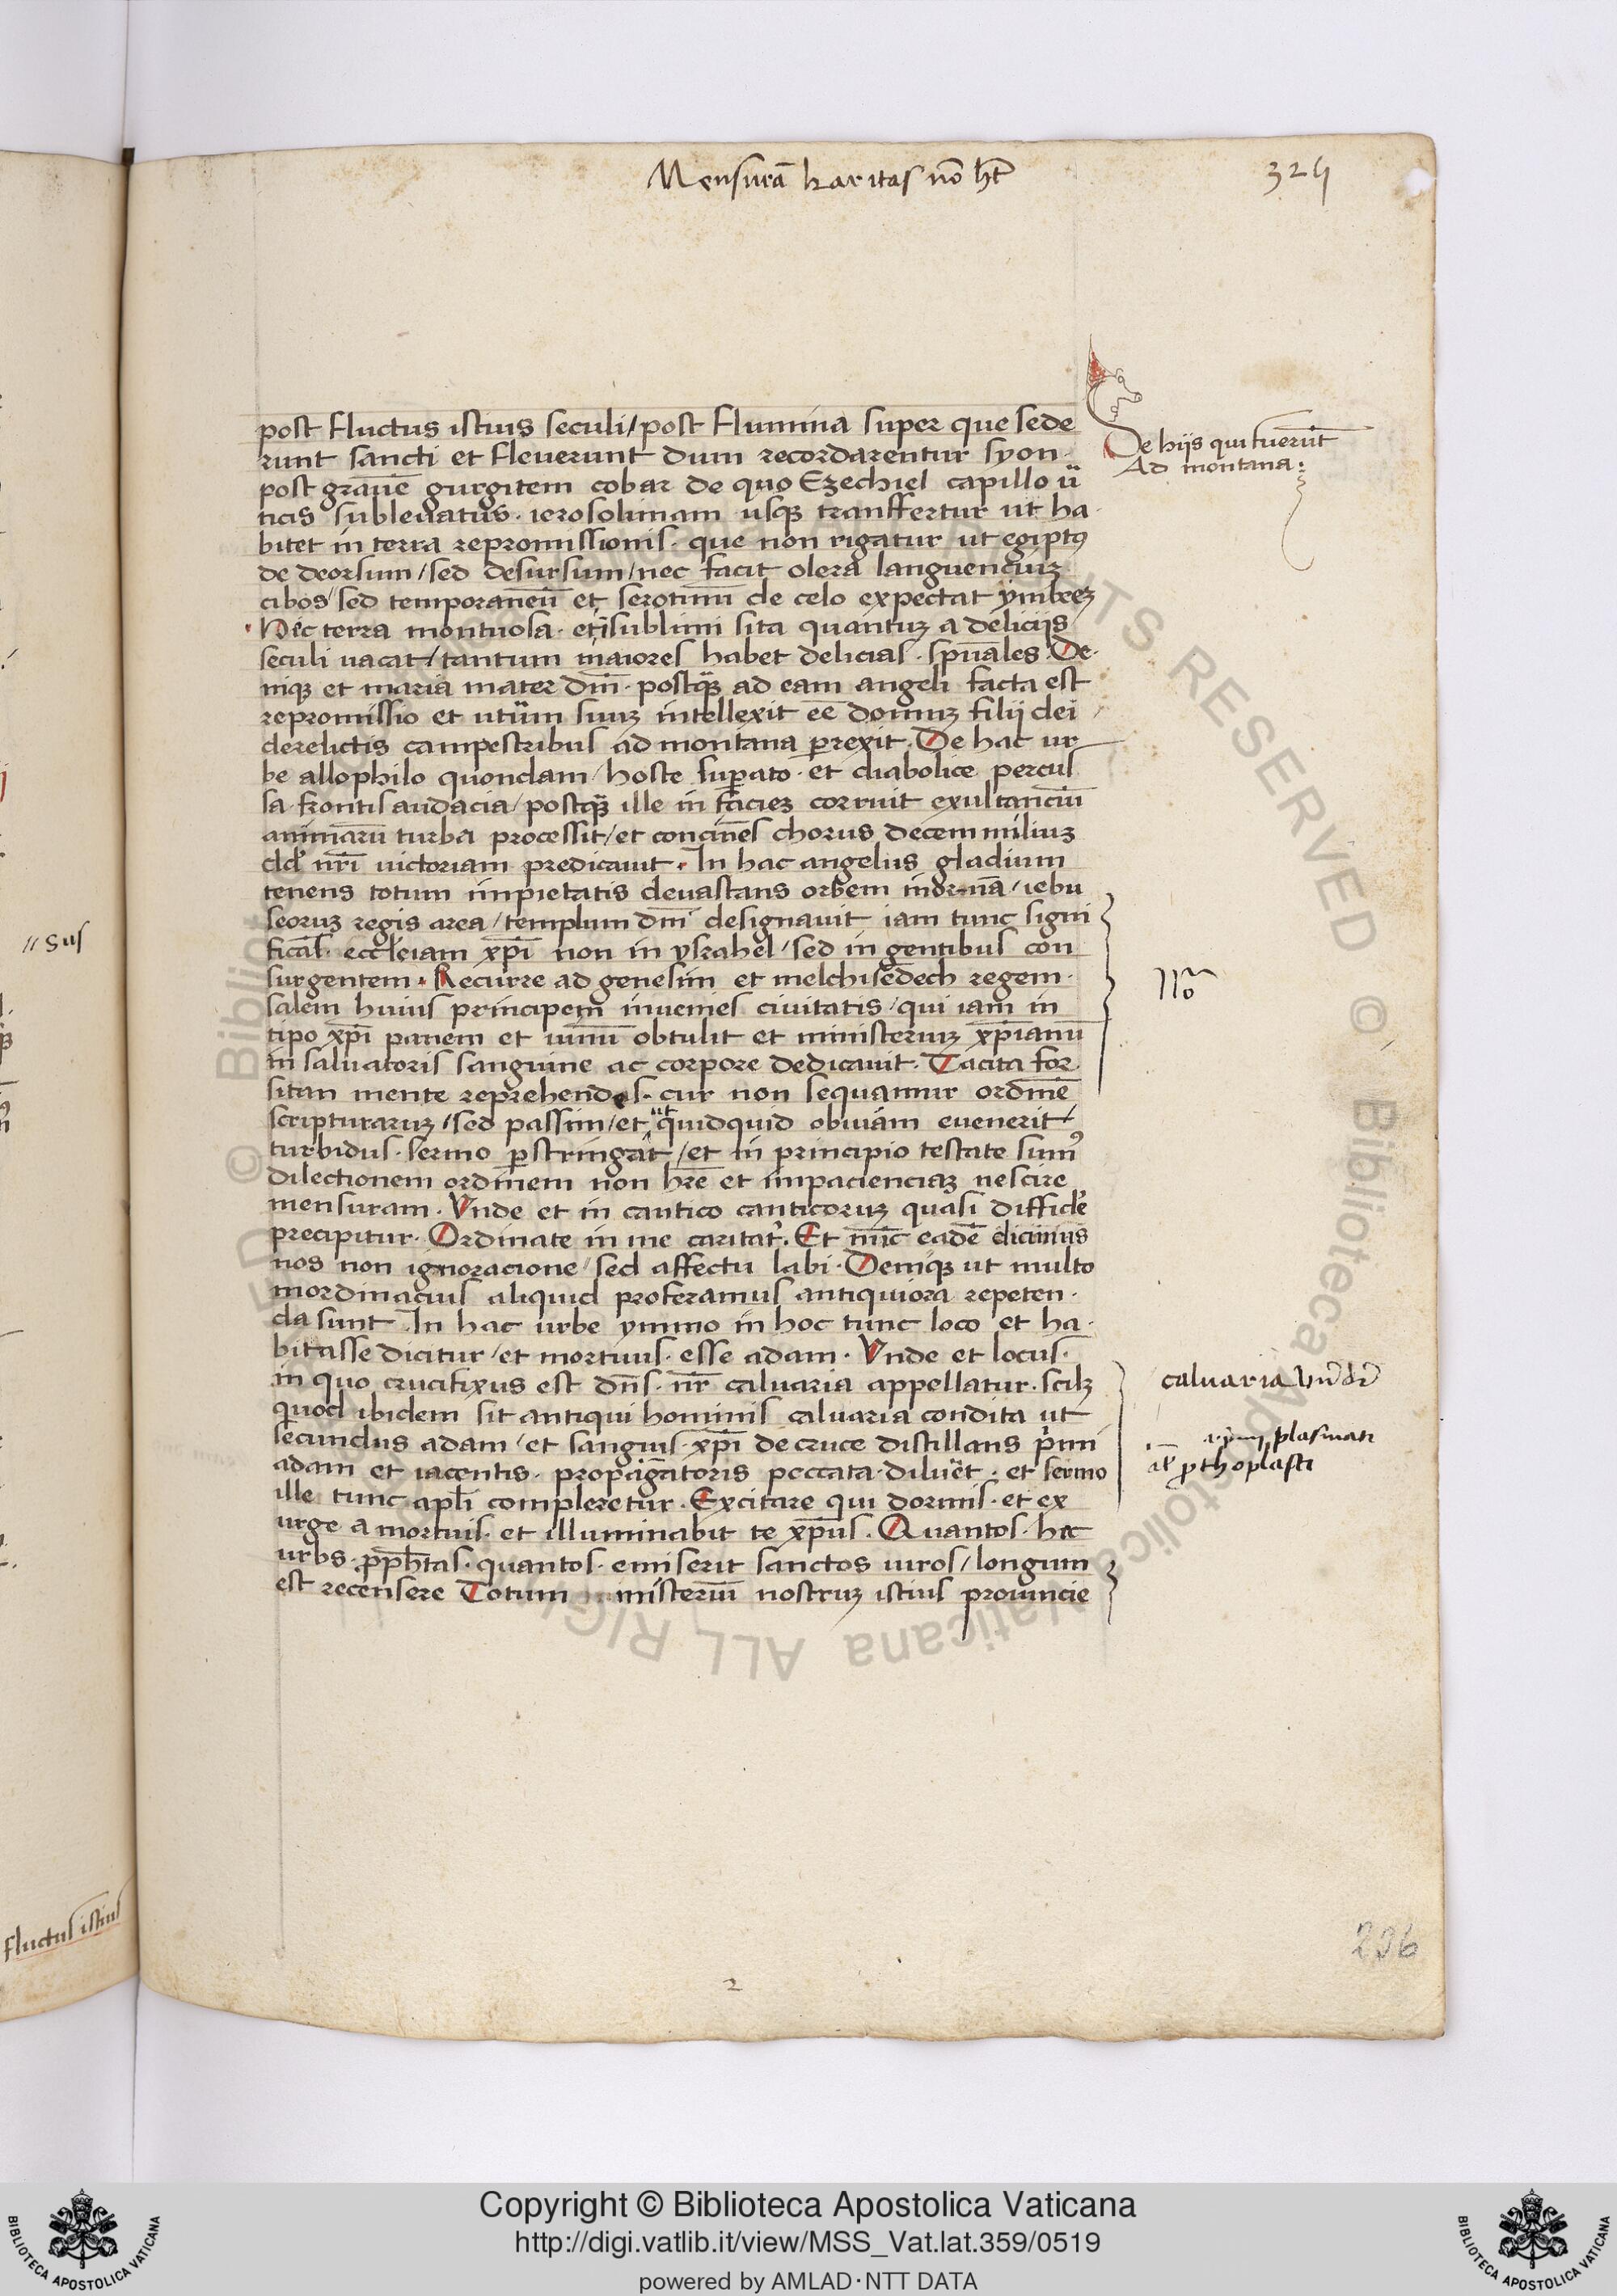 Mensurā karitas nō hꝫt
324
post fluctus istius seculi / post flumina super que sede
runt sancti et fleverunt dum recordarentur syon ·
post gravē gurgitem cobar de quo Ezechiel capillo ū
ticis sublevatus · ierosolimam usqꝫ transfertur ut ha
bitet in terra repromissionis · que non rigatur ut egiptꝰ
de deorsum / sed desursum / nec facit olera languenciuꝫ
cibos / sed temporaneū et serotinū de celo expectat ymbreꝫ
Hec terra montuosa · et ī sublimi sita quantuꝫ a deliciis
seculi vacat / tantum maiores habet delicias · spūales · De
niqꝫ et maria mater dn̄i · postqꝫ ad eam angeli facta est
repromissio et utūm suuꝫ intellexit eē domuꝫ filii dei
derelictis campestribus ad montana ꝑrexit · De hac ur
be allophilo quondam / hoste suꝑato · et diabolice percus
sa frontis audacia / postqꝫ ille in facieꝫ corruit exultanciū
animarū turba processit / et concinēs chorus decem miliuꝫ
dd̕ nr̄i victoriam predicavit · In hac angelus gladium
tenens totum impietatis devastans orbem in ornā / iebu
seoruꝫ regis area / templum dn̄i designavit iam tunc signi
ficās · eccleiam xp̄i non in ysrahel / sed in gentibus con
surgentem · Recurre ad genesim et melchisedech regem ·
salem huius principem invenies civitatis / qui iam in
tipo xp̄i panem et vinū obtulit et misteriuꝫ xp̄ianū
in salvatoris sanguine ac corpore dedicavit · Tacita for
sitan mente reprehendes · cur non sequamur ordinē
scripturaruꝫ / sed passim / et ut quidquid obviam evenerit /
turbidus · sermo ꝑstringat / et in principio testate sumꝰ
dilectionem ordinem non hr̄e et impacienciaꝫ nescire
mensuram · Unde et in cantico canticoruꝫ quasi difficle
precipitur · Ordinate in me caritat̕ · Et nūc eadē dicimus
nos non ignoracione / sed affectu labi · Deniqꝫ ut multo
inordinacius aliquid proferamus antiquiora repeten
da sunt In hac urbe ymmo in hoc tunc loco et ha
bitasse dicitur / et mortuus · esse adam · Unde et locus ·
in quo crucifixus est dn̄s · nr̄ calvaria appellatur · scilꝫ
quod ibidem sit antiqui hominis calvaria condita ut
secundus adam / et sanguis · xp̄i de cruce distillans p̄mi
adam et iacentis · propagatoris peccata · diluēt · et sermo
ille tunc apl̄i compleretur · Excitare qui dormis · et ex
urge a mortuis · et illuminabit te xp̄us · Quantos · hec
urbs · ꝓph̄tas · quantos · emiserit sanctos viros / longum
est recensere Totum misteriū nostruꝫ istius provincie
De hiis qui fuerūt
Ad montana
No
calvaria
plasmati
al̄ ꝓthoplasti
sus
fluctus istius
296
2
© Biblioteca Apostolica Vaticana ALL RIGHTS RESERVED
Copyright © Biblioteca Apostolica Vaticana
http://digi.vatlib.it/view/MSS_Vat.lat.359/0519
powered by AMLAD·NTT DATA
BIBLIOTECA APOSTOLICA VATICANA
BIBLIOTECA APOSTOLICA VATICANA